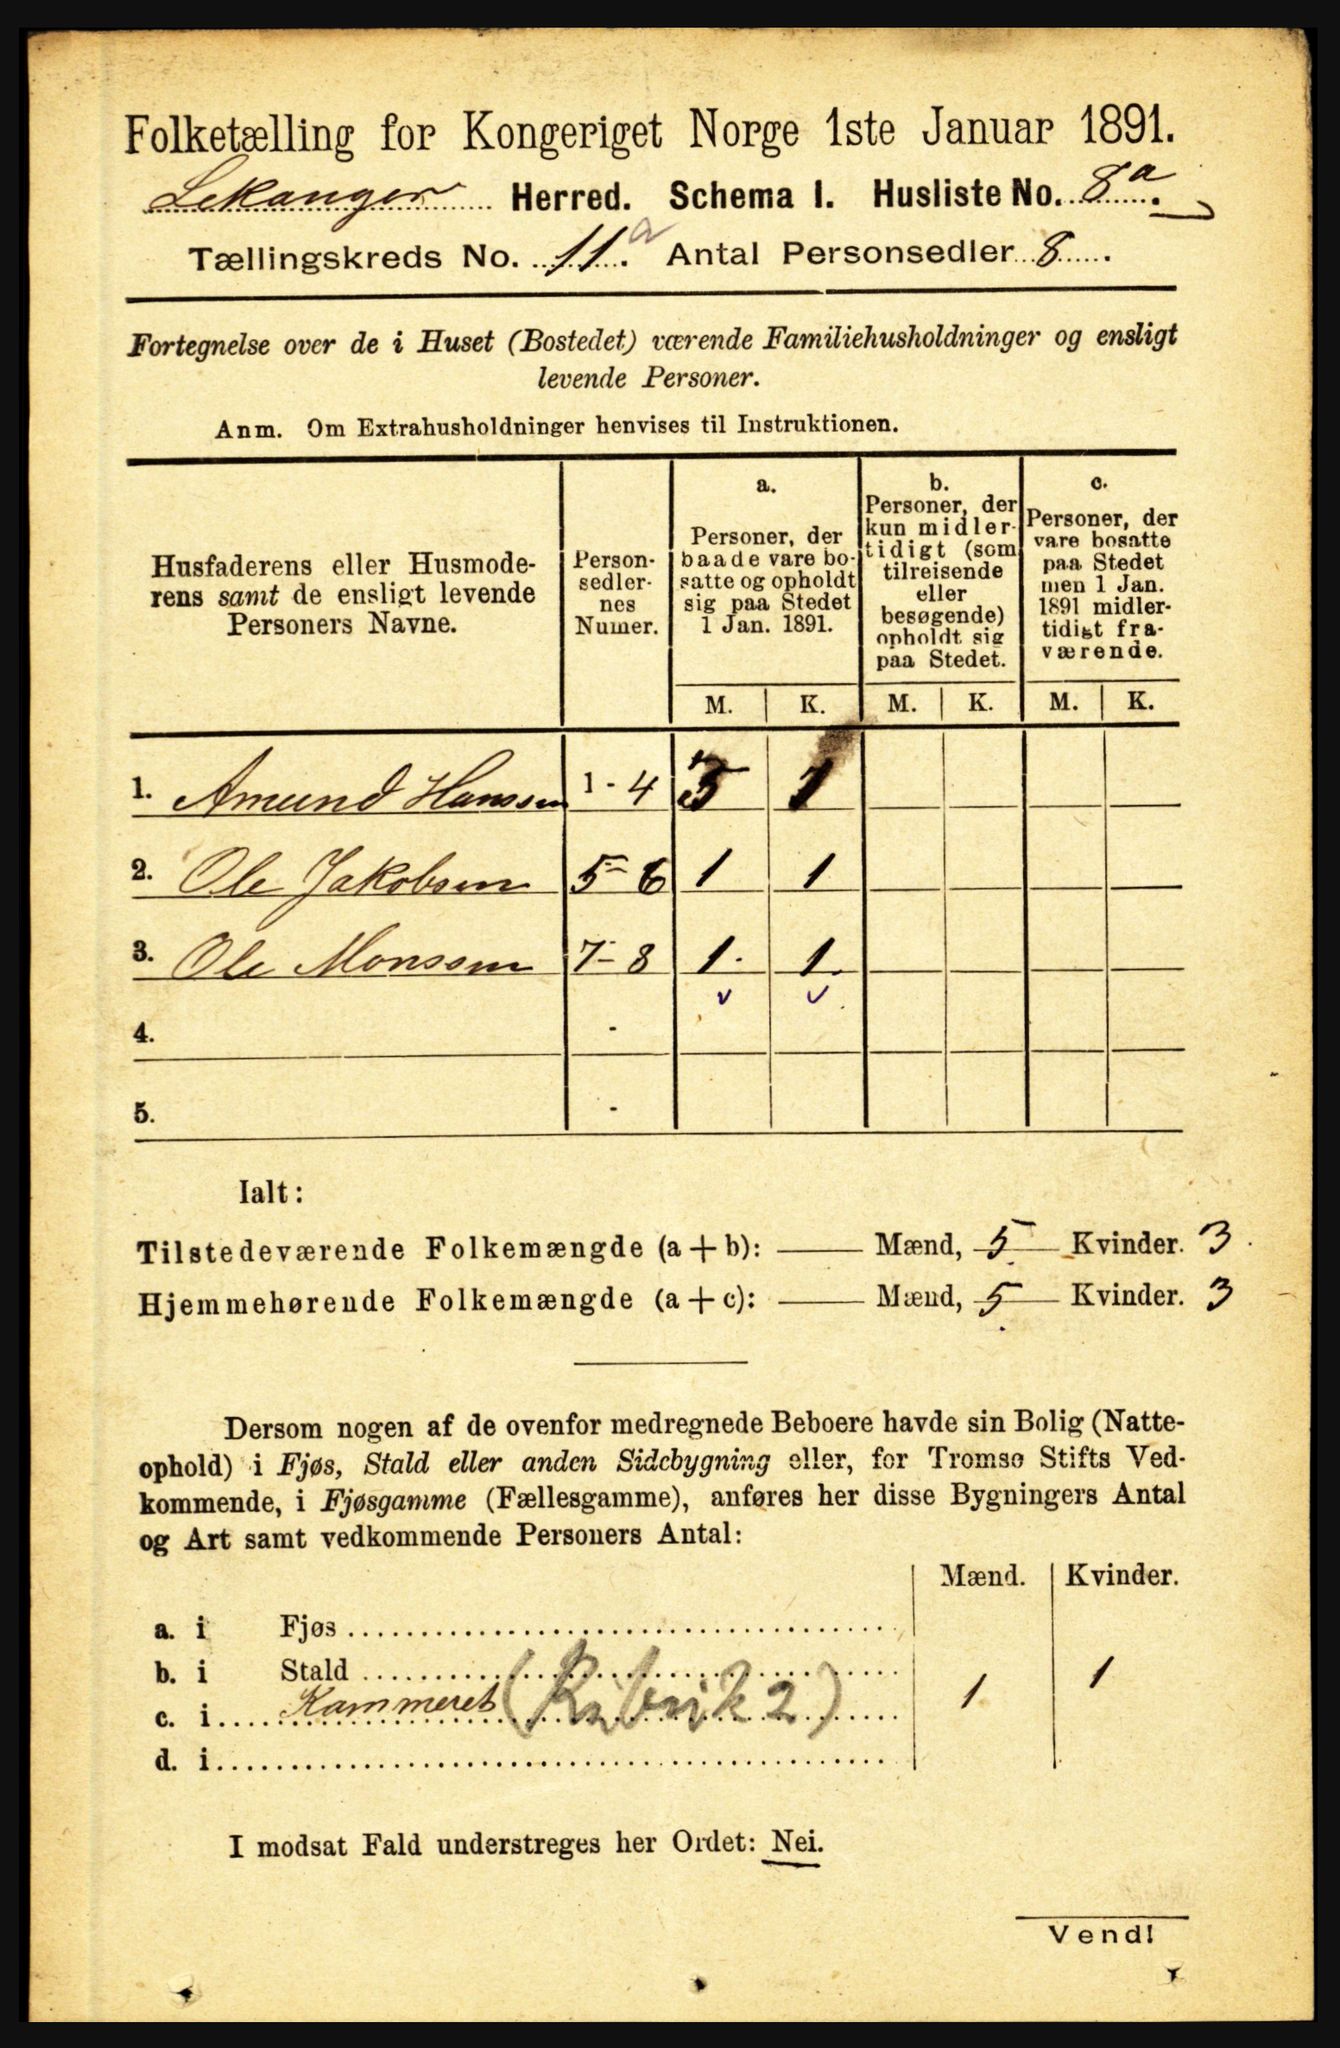 Folketælling for Kongeriget Norge 1ste Januar 1891.
Lekanger Herred. Schema I. Husliste No. 8a.
Tællingskreds No. 11a. Antal Personsedler 8.
Fortegnelse over de i Huset (Bostedet) værende Familiehusholdninger og ensligt
levende Personer.
Anm. Om Extrahusholdninger henvises til Instruktionen.
Husfaderens eller Husmode-
rens samt de ensligt levende
Personers Navne.
Person-
sedler-
nes
Numer.
a.
Personer, der
baade vare bo-
satte og opholdt
sig paa Stedet
1 Jan. 1891.
b.
Personer, der
kun midler-
tidigt (som
tilreisende
eller
besøgende)
opholdt sig
paa Stedet.
c.
Personer, der
vare bosatte
paa Stedet
men 1 Jan.
1891 midler-
tidigt fra-
værende.
M. K. M. K. M. K.
1. Amund Hanssen 1 - 4 3 1
2. Ole Jakobsen 5 - 6 1 1
3. Ole Monssen 7 - 8 1. 1.
4. -
5. -
Ialt:
Tilstedeværende Folkemængde (a + b): Mænd, 5 Kvinder. 3
Hjemmehørende Folkemængde (a + c): Mænd, 5 Kvinder. 3
Dersom nogen af de ovenfor medregnede Beboere havde sin Bolig (Natte-
ophold) i Fjøs, Stald eller anden Sidebygning eller, for Tromsø Stifts Ved-
kommende, i Fjøsgamme (Fællesgamme), anføres her disse Bygningers Antal
og Art samt vedkommende Personers Antal:
Mænd. Kvinder.
a. i Fjøs
b. i Stald
c. i Kammeret (Rubrik 2) 1 1
d. i
I modsat Fald understreges her Ordet: Nei.
Vend!